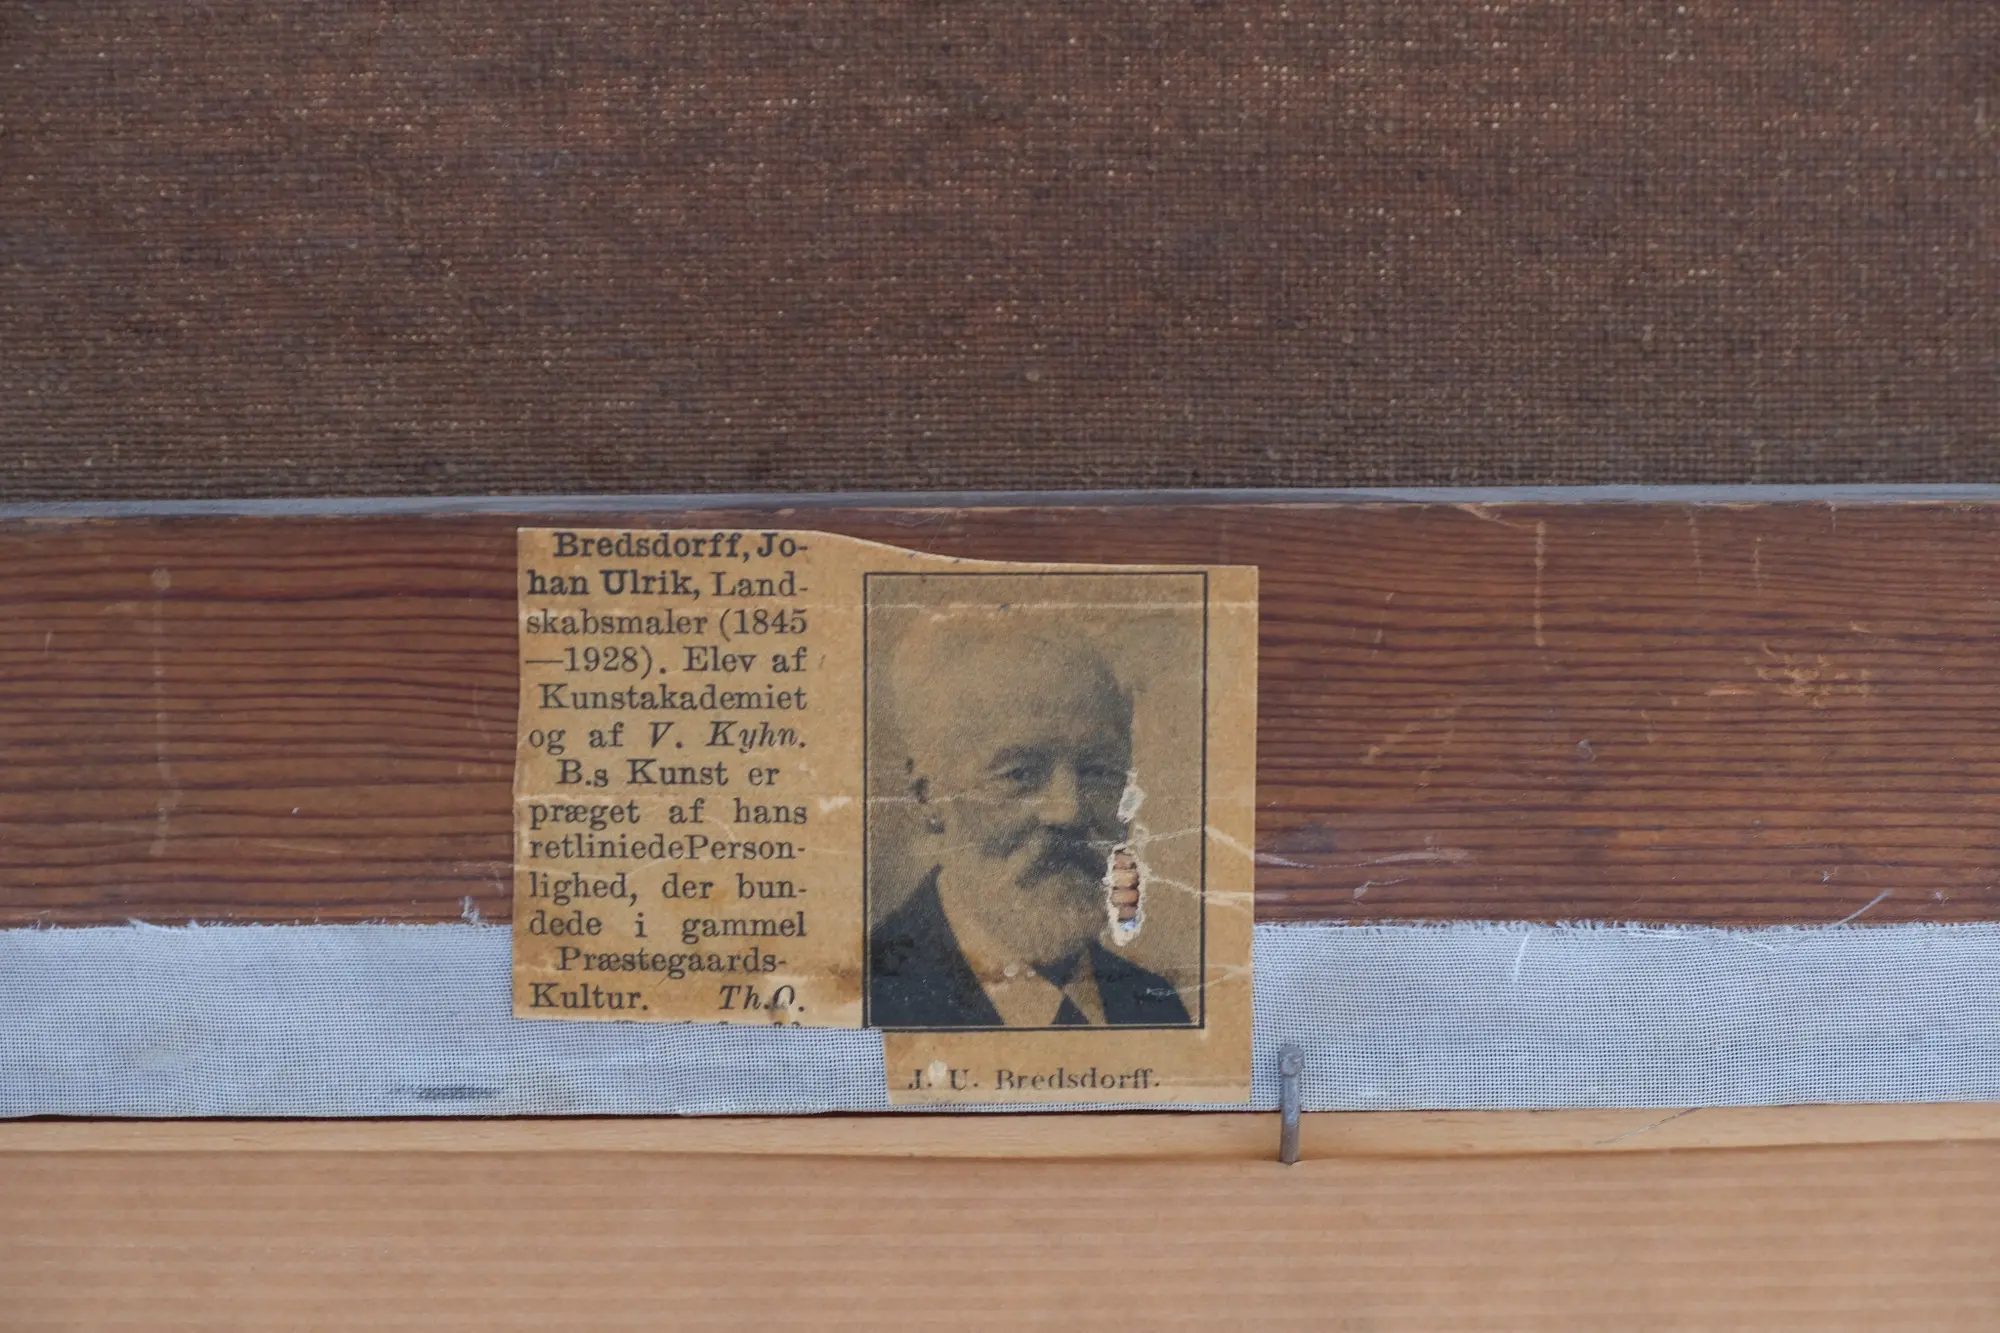 Bredsdorff, Jo-
han Ulrik, Land-
skabsmaler (1845
—1928). Elev af
Kunstakademiet
og af V. Kyhn.
B.s Kunst er
præget af hans
retliniede Person-
lighed, der bun-
dede i gammel
Præstegaards-
Kultur. Th.O.
J. U. Bredsdorff.